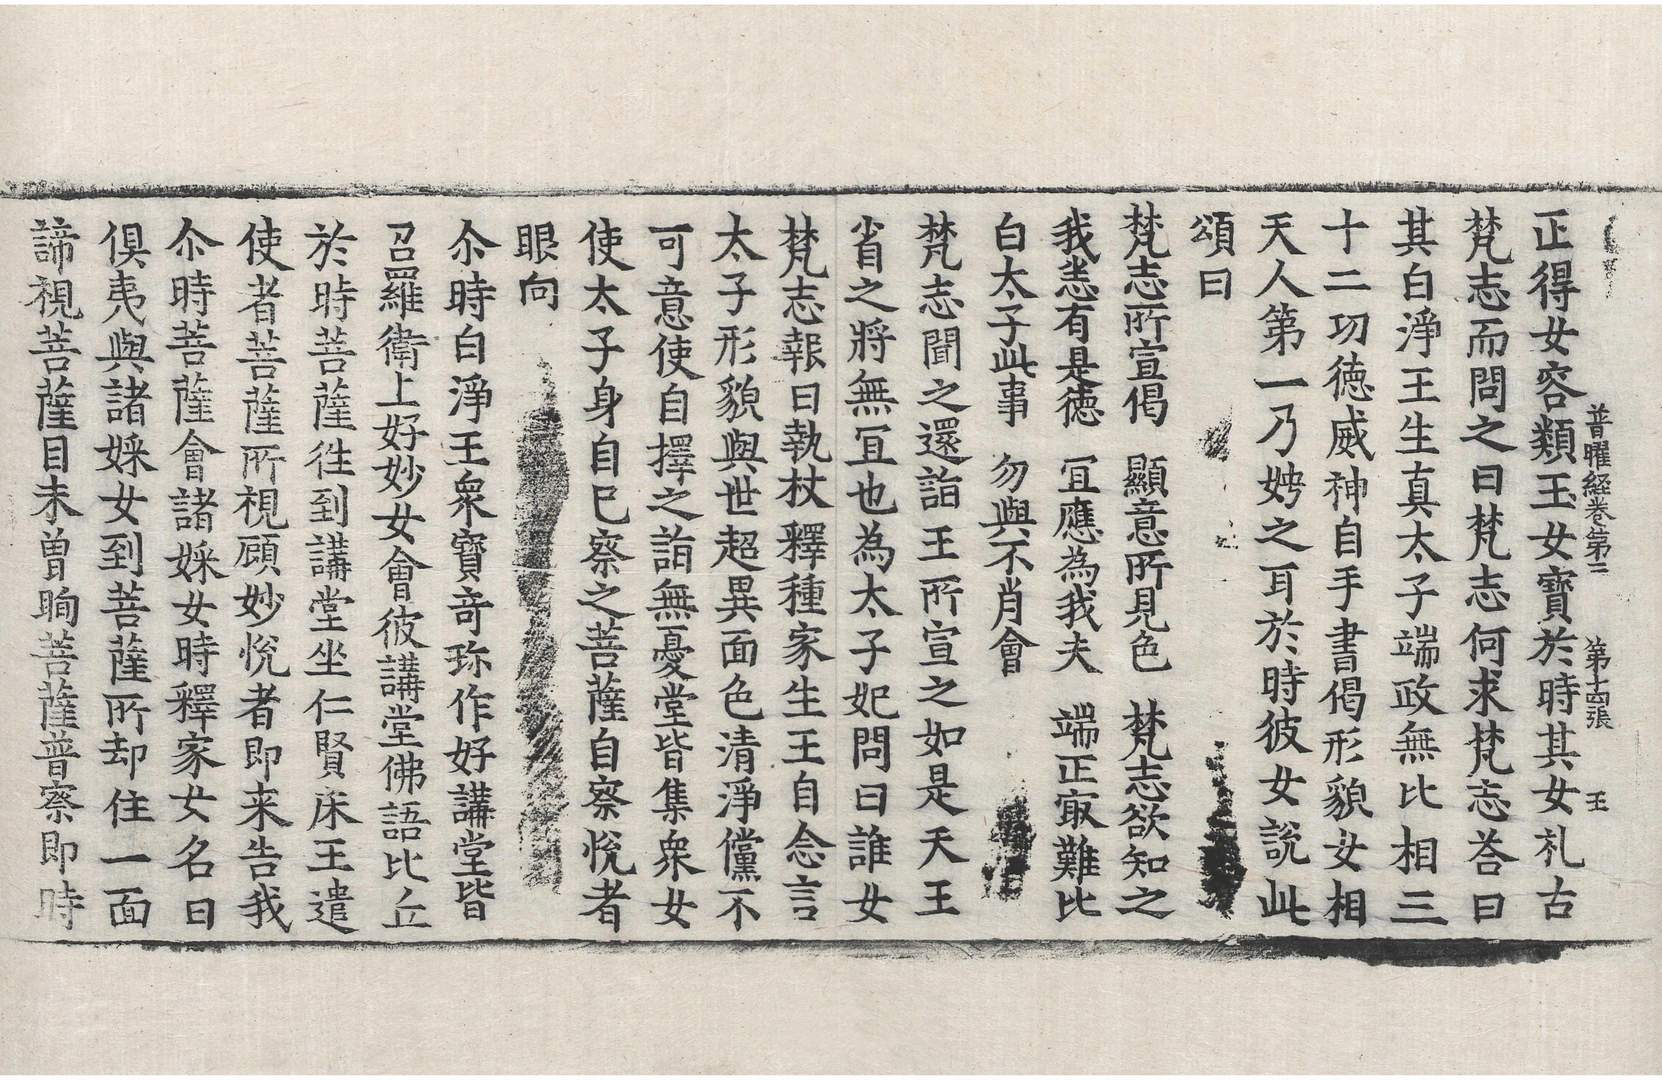 普曜経卷第三　第十四張　王
正得女容類玉女寶於時其女礼右
梵志而問之曰梵志何求梵志荅曰
其白淨王生真太子端政無比相三
十二功德威神自手書偈形貌女相
天人第一乃娉之耳於時彼女說此
頌曰
梵志所宣偈　顯意所見色　梵志欲知之
我恙有是德　冝應為我夫　端正㝡難比
白太子此事　勿與不肖會
梵志聞之還詣王所宣之如是天王
省之將無冝也為太子妃問曰誰女
梵志報曰執杖釋種家生王自念言
太子形貌與世超異面色清淨儻不
可意使自擇之詣無憂堂皆集衆女
使太子身自已察之菩薩自察悅者
眼向
尒時白淨王衆寶竒珎作好講堂皆
召羅衛上好妙女會彼講堂佛語比丘
於時菩薩徃到講堂坐仁賢床王遣
使者菩薩所視顧妙悅者即来告我
尒時菩薩會諸婇女時釋家女名曰
俱夷與諸婇女到菩薩所却住一面
諦視菩薩目未曾眴菩薩普察即時